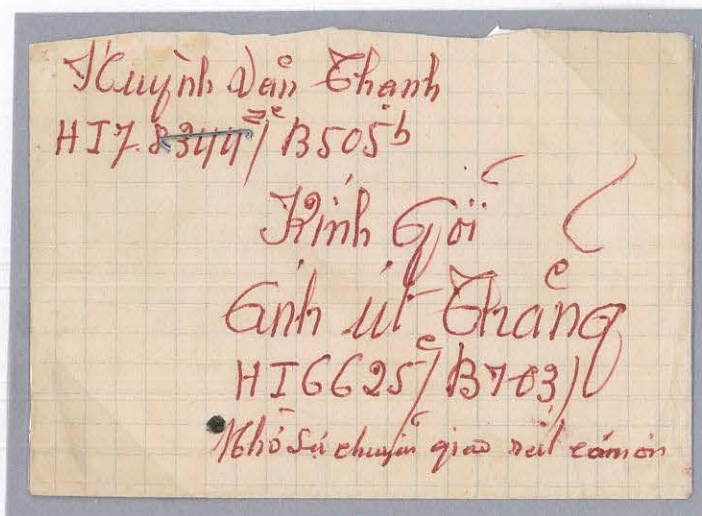 Huỳnh Văn Thạnh
HI7.8344YE/B505b
Kính Gởi
Anh Út Thắng
HI6625Y/B703
Nhờ Sự chuyển giao rất cám ơn